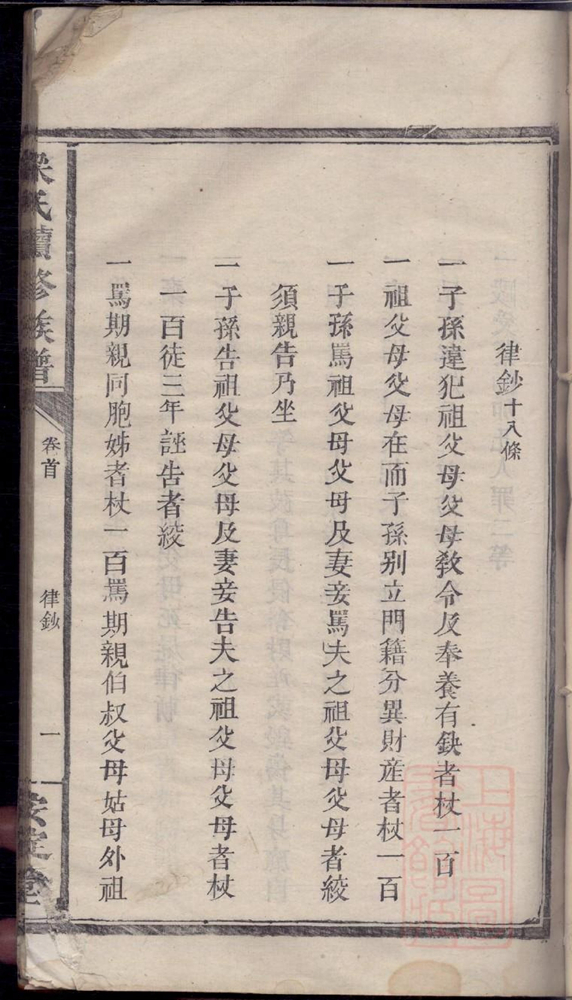 律鈔十八條
一子孫違犯祖父母父母敎令及奉養有缺者杖一百
一祖父母父母在而子孫別立門籍分異財產者杖一百
一子孫罵祖父母父母及妻妾罵夫之祖父母父母者絞
須親告乃坐
一子孫告祖父母父母及妻妾告夫之祖父母父母者杖
一百徒三年誣告者絞
一罵期親同胞姊者杖一百罵期親伯叔父母姑母外祖
氏續修族譜
卷首
律鈔
一
安定堂